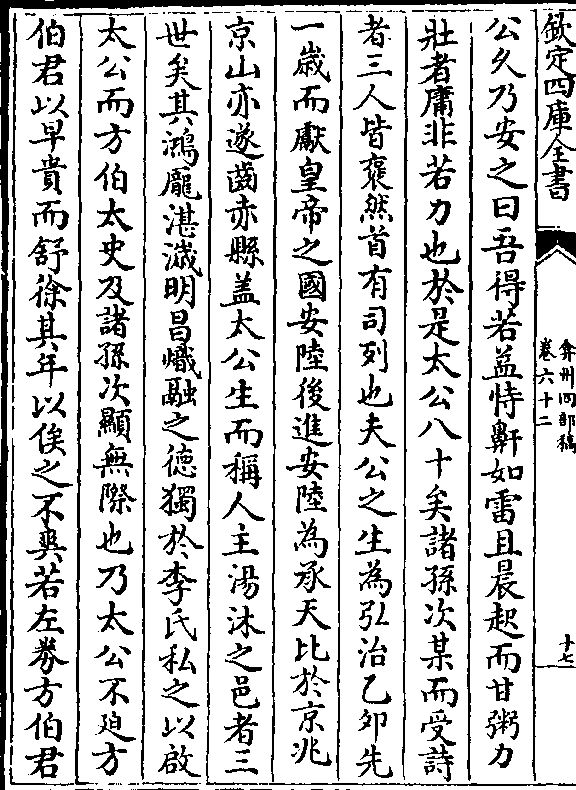 欽定四庫全書
弇州四部稿
卷六十二
十七
公久乃安之曰吾得若益恃鼾如雷且晨起而甘粥力
壯者庸非若力也於是太公八十矣諸孫次某而受詩
者三人皆褎然首有司列也夫公之生為弘治乙卯先
一歲而獻皇帝之國安陸後進安陸為承天比於京兆
京山亦遂齒赤縣盖太公生而稱人主湯沐之邑者三
世矣其鴻龐湛濊明昌熾融之德獨於李氏私之以啟
太公而方伯太史及諸孫次顯無際也乃太公不廹方
伯君以早貴而舒徐其年以俟之不爽若左劵方伯君